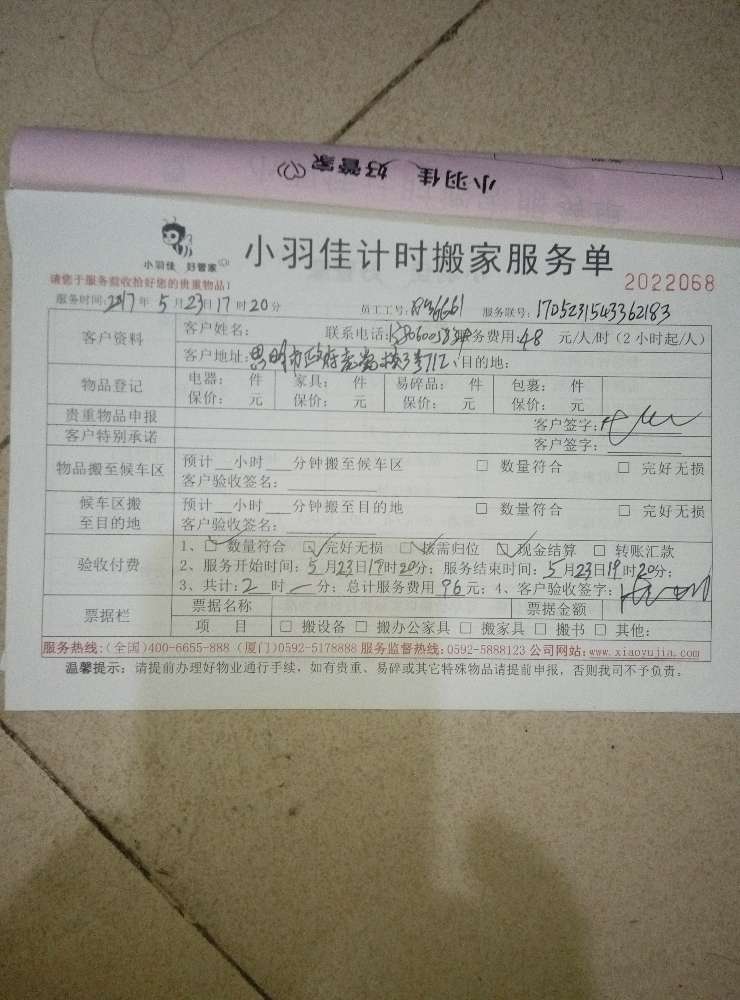 小羽佳 好管家
小羽佳 好管家
小羽佳计时搬家服务单
2022068
请您于服务验收拾好您的贵重物品!
服务时间:2017年5月23日17时20分 员工工号: 服务联号:1705231543362183
客户资料 客户姓名: 联系电话: 服务费用:48 元/人/时(2小时起/人)
客户地址: 目的地:
物品登记 电器: 件 家具: 件 易碎品: 件 包裹: 件
保价: 元 保价: 元 保价: 元 保价: 元
贵重物品申报 客户签字:
客户特别承诺 客户签字:
物品搬至候车区 预计__小时___分钟搬至候车区 □ 数量符合 □ 完好无损
客户验收签名:
候车区搬至目的地 预计__小时___分钟搬至目的地 □ 数量符合 □ 完好无损
客户验收签名:
验收付费 1、☑ 数量符合 ☑ 完好无损 ☑ 按需归位 ☑ 现金结算 □ 转账汇款
2、服务开始时间:5月23日17时20分; 服务结束时间:5月23日19时20分;
3、共计:2 时 — 分; 总计服务费用 96 元; 4、客户验收签字:
票据栏 票据名称 票据金额
项 目 □ 搬设备 □ 搬办公家具 □ 搬家具 □ 搬书 □ 其他:
服务热线:(全国)400-6655-888 (厦门)0592-5178888 服务监督热线:0592-5888123 公司网站:www.xiaoyujia.com
温馨提示: 请提前办理好物业通行手续, 如有贵重、易碎或其它特殊物品请提前申报, 否则我司不予负责。